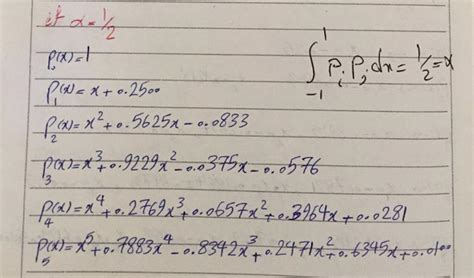 if α = 1/2
P₀(x) = 1
∫₋₁¹ Pᵢ Pⱼ dx = 1/2 = α
P₁(x) = x + 0.2500
P₂(x) = x² + 0.5625x - 0.0833
P₃(x) = x³ + 0.9229x² - 0.0375x - 0.0576
P₄(x) = x⁴ + 0.2769x³ + 0.0657x² + 0.3964x + 0.0281
P₅(x) = x⁵ + 0.7883x⁴ - 0.8342x³ + 0.2471x² + 0.6345x + 0.0100